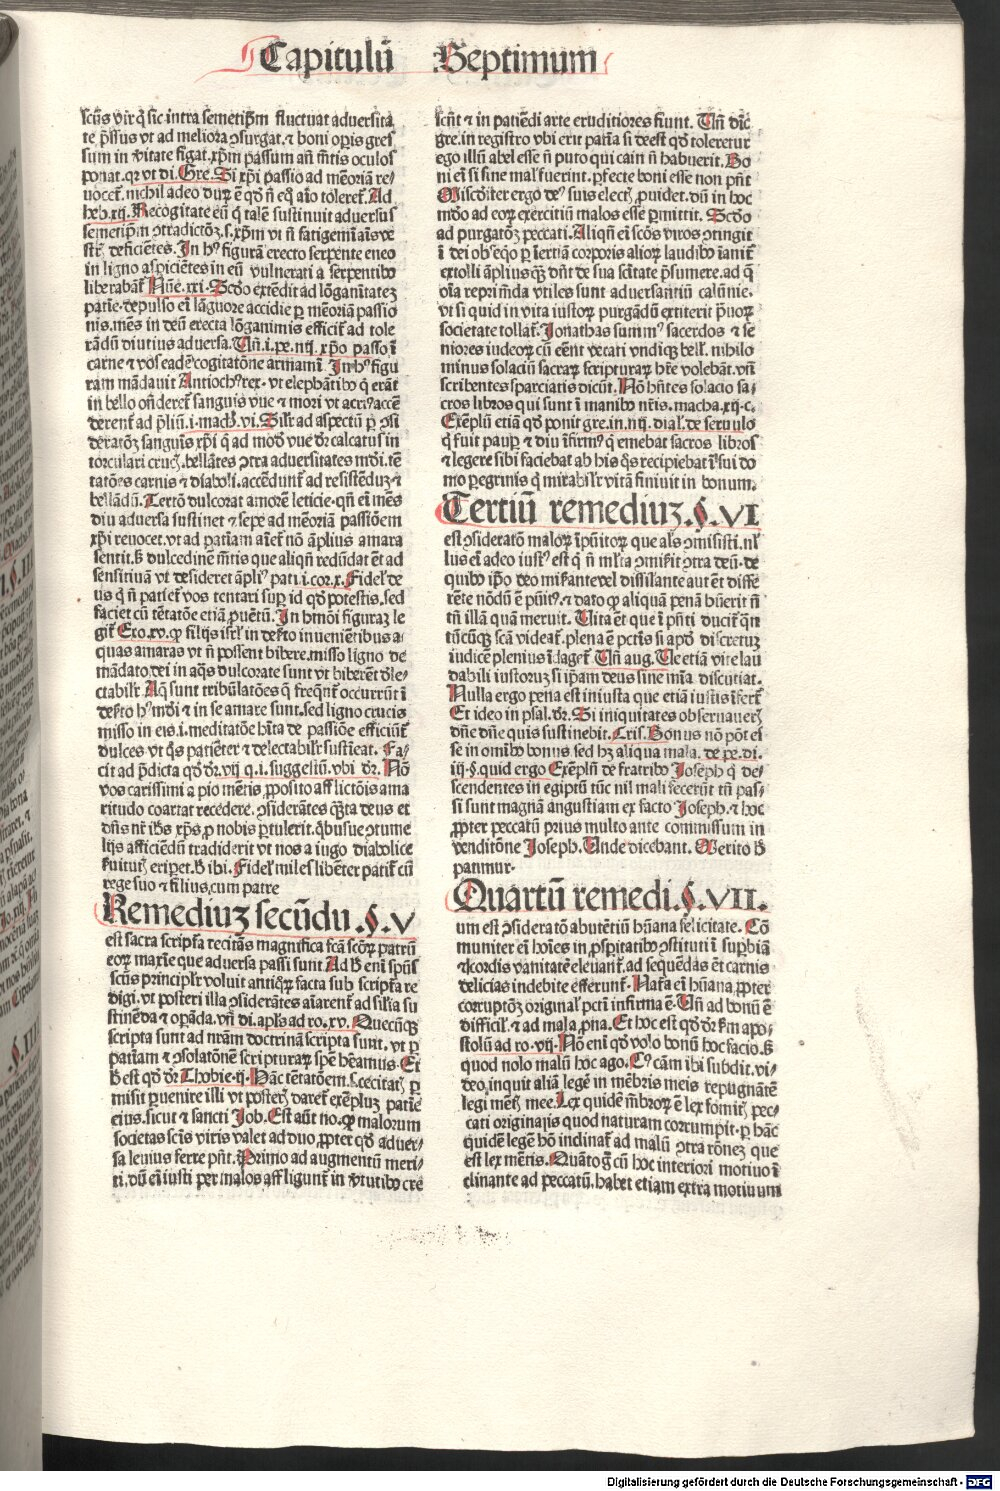 Capitulū Septimum
scūs vir q̄ sic intra semetip̄m fluctuat adversita
te p̄ssus vt ad meliora ꝯsurgat. ⁊ boni op̄is gres
sum in v̄itate figat. xp̄m passum añ m̄tis oculos
ponat. qꝛ vt di. Gre. Si xp̄i passio ad mēoriā re⸗
uocet̄. nichil adeo duꝝ ē qd̄ n̄ eq̄ aīo toleret̄. Ad
heb. xij. Recogitate eū q̄ talē sustinuit adversus
semetip̄m ꝯtradictōꝫ. s. xp̄m vt n̄ fatigemī aīs ve
stris deficiētes. In hꝰ figurā erecto serpente eneo
in ligno aspiciētes in eū vulnerati a serpentibꝰ
liberabāt̄. Nūe. xxi. Scd̄o extēdit ad lōganīitateꝫ
patīe. depulso eī lāguore accidie ꝑ mēoriā passio
nis. mēs in deū erecta lōganimis efficit̄ ad tole
rādū diutius adversa. Vn̄. i. pe. iiij. xp̄o passo ī
carne ⁊ vos eadē cogitatōne armamī. In hꝰ figu
ram mādauit Antiochꝰ rex. vt elephātibꝰ q̄ erāt
in bello oñderet̄ sanguis vue ⁊ mori vt acriꝰ accē
derent̄ ad p̄liū. i. mach. vi. Silr̄ ad aspectū ꝑ ꝯsi
deratōꝫ sanguīs xp̄i q̄ ad modū vue dr̄ calcatus in
torculari crucꝭ. bellātes ꝯtra adversitates mūdi. tē
tatōes carnis ⁊ diaboli. accēdunt̄ ad resistēduꝫ ⁊
bellādū. Tertō dulcorat amorē leticie. qn̄ eī mēs
diu adversa sustinet ⁊ sepe ad mēoriā passiōem
xp̄i reuocet. vt ad patriam aīet̄ nō āplius amara
sentit. ß dulcedinē m̄tis que aliqn̄ redūdat ēt ad
sensitiuā vt desideret āpliꝰ pati. i. cor. x. Fidel' de
us q̄ n̄ patiet̄ vos tentari suꝑ id qd̄ potestis. sed
faciet cū tētatōe etiā ꝓuētū. In hmōi figuraꝫ le
git̄ Exo. xv. ꝙ filijs isr̄l in def̄to inuenīētibus a⸗
quas amaras vt n̄ possent bibere. misso ligno de
mādato dei in aq̄s dulcorate sunt vt biberēt dele⸗
ctabilr̄. Aq̄ sunt tribulatōes q̄ freqn̄t̄ occurrūt ī
def̄to hꝰ mūdi ⁊ in se amare sunt. sed ligno crucis
misso in eis. i. meditatōe hīta de passiōe efficiūt̄
dulces vt q̄s patiēter ⁊ delectabilr̄ sustīeat. Fa⸗
cit ad p̄dicta qd̄ dr̄. vij. q. i. suggestū. vbi dr̄. Nō
vos carissimi a pio mētis ꝓposito afflictōis ama
ritudo coartat recedere. ꝯsiderātes q̄ꝫta deus et
dn̄s nr̄ ihs xp̄s ꝓ nobis ꝑtulerit. q̄busue ꝯtume
lijs afficiēdū tradiderit vt nos a iugo diabolice
fuitutꝭ eriꝑet. ß ibi. Fidel' miles libēter patit̄ cū
rege suo ⁊ filius. cum patre
Remediuꝫ secūdu. §. V
est sacra scriptā recitās magnifica fc̄ā scōꝝ patrū
eoꝝ maxīe que adversa passi sunt. Ad ß enī spūs
scūs principlr̄ voluit antiqꝝ facta sub scripta re
digi. vt posteri illa ꝯsiderātes aīarent̄ ad sil'ia su
stinēda ⁊ oꝑāda. vn̄ di. apl's ad ro. xv. Quecūqꝫ
scripta sunt ad nr̄am doctrinā scripta sunt. vt ꝑ
patīam ⁊ ꝯsolatōnē scripturaꝝ spē hēamus. Et
ß est qd̄ dr̄ Thobie. ij. Hāc tētatōem. s. cecitatꝭ ꝑ
misit ꝑuenire illi vt posterꝭ daret̄ exēpluꝫ patīe
eius. sicut ⁊ sancti Job. Est aūt no. ꝙ malorum
societas scīs viris valet ad duo. ꝓpter qd̄ aduer⸗
sa leuius ferre pn̄t. Primo ad augmentū meri⸗
ti. dū eī iusti per malos affligunt̄ in v̄tutibꝰ cre
scūt ⁊ in patiēdi arte eruditiores fiunt. Vn̄ dic̄
gre. in registro vbi erit patīa si deest qd̄ toleretur
ego illū abel esse n̄ puto qui cain n̄ habuerit. Bo
ni eī si sine mal' fuerint. ꝑfecte boni esse non pn̄t
Miscōiter ergo deꝰ suis electꝭ ꝓuidet. dū in hoc
mūdo ad eoꝝ exercitiū malos esse ꝑmittit. Scd̄o
ad purgatōꝫ peccati. Aliqn̄ eī scōs viros ꝯtingit
ī dei obseq̄o ꝑ īertiā corporis alioꝝ laudibꝰ īanit̄
extolli āplius qꝫ dn̄t de sua scītate p̄sumere. ad q̄
oīa reprimēda vtiles sunt adversantiū calūnie.
vt si quid in vita iustoꝝ purgādū extiterit p̄uoꝝ
societate tollat̄. Jonathas summꝰ sacerdos ⁊ se
niores iudeoꝝ cū eēnt vexati vndiqꝫ bell'. nihilo
minus solaciū sacraꝝ scripturaꝝ hr̄e volebāt. vn̄
scribentes sparciatis dicūt. Nō hn̄tes solacio sa⸗
cros libros qui sunt ī manibꝰ nr̄is. macha. xij. c.
Exēplū etiā qd̄ ponit gre. in. iiij. dial'. de seruulo
q̄ fuit pauꝑ ⁊ diu īfirmꝰ q̄ emebat sacros libros
⁊ legere sibi faciebat ab his q̄s recipiebat ī sui do
mo ꝑegrinis q̄ mirabilr̄ vitā finiuit in bonum.
Tertiū remediuꝫ. §. VI
est ꝯsideratō maloꝝ īpūitoꝝ que als ꝯmisisti. nl'
lus eī adeo iustꝰ est q̄ n̄ ml'ta ꝯmiserit ꝯtra deū. de
quibꝰ ip̄o deo miserante vel dissilante aut ēt diffe
rēte nōdū ē pūitꝰ. ⁊ dato ꝙ aliquā penā hūerit n̄
tn̄ illā quā meruit. Vita ēt que ī pn̄ti ducit̄ qn̄
tūcūqꝫ scā videat̄. plena ē pctīs si apd̄ discretuꝫ
iudicē plenius īdaget̄. Vn̄ aug. Ue etiā vite lau
dabili iustoruꝫ si ip̄am deus sine mīa discutiat.
Nulla ergo pena est iniusta que etiā iustis īfert̄.
Et ideo in psal. dr̄. Si iniquitates obseruauerꝭ
dn̄e dn̄e quis sustinebit. Cris. Bonus nō pōt es
se in omībꝰ bonus. sed hꝫ aliqua mala. de pe. di.
iij. §. quid ergo Exēplū de fratribꝰ Joseph q̄ de⸗
scendentes in egiptū tūc nil mali fecerūt tn̄ pas⸗
si sunt magnā angustiam ex facto Joseph. ⁊ hoc
ꝓpter peccatū prius multo ante commissum in
venditōne Joseph. Unde dicebant. Merito ß
patimur.
Quartū remedi. §. VII.
um est ꝯsideratō abutētiū hūana felicitate. Cō
muniter eī hoīes in ꝓspitatibꝰ ꝯstituti ī supbiā
⁊ cordis vanitatē eleuant̄. ad sequēdas ēt carnis
delicias indebite efferunt̄. Nat̄a eī hūana. ꝓpter
corruptōꝫ original' pctī infirma ē. Vn̄ ad bonū ē
difficil'. ⁊ ad mala ꝓna. Et hoc est qd̄ dr̄ fm apo⸗
stolū ad ro. vij. Nō enī qd̄ volo bonū hoc facio. ß
quod nolo malū hoc ago. Eꝰ cām ibi subdit. vi⸗
deo inquit aliā legē in mēbris meis repugnātē
legi mētꝭ mee. Lex quidē mēbroꝝ ē lex fomitꝭ pec⸗
cati originalis quod naturam corrumpit. ꝑ hāc
quidē legē hō inclinat̄ ad malū ꝯtra rōnez que
est lex mētis. Quāto ḡ cū hoc interiori motiuo ī
clinante ad peccatū. habet etiam extra motiuum
Digitalisierung gefördert durch die Deutsche Forschungsgemeinschaft - DFG